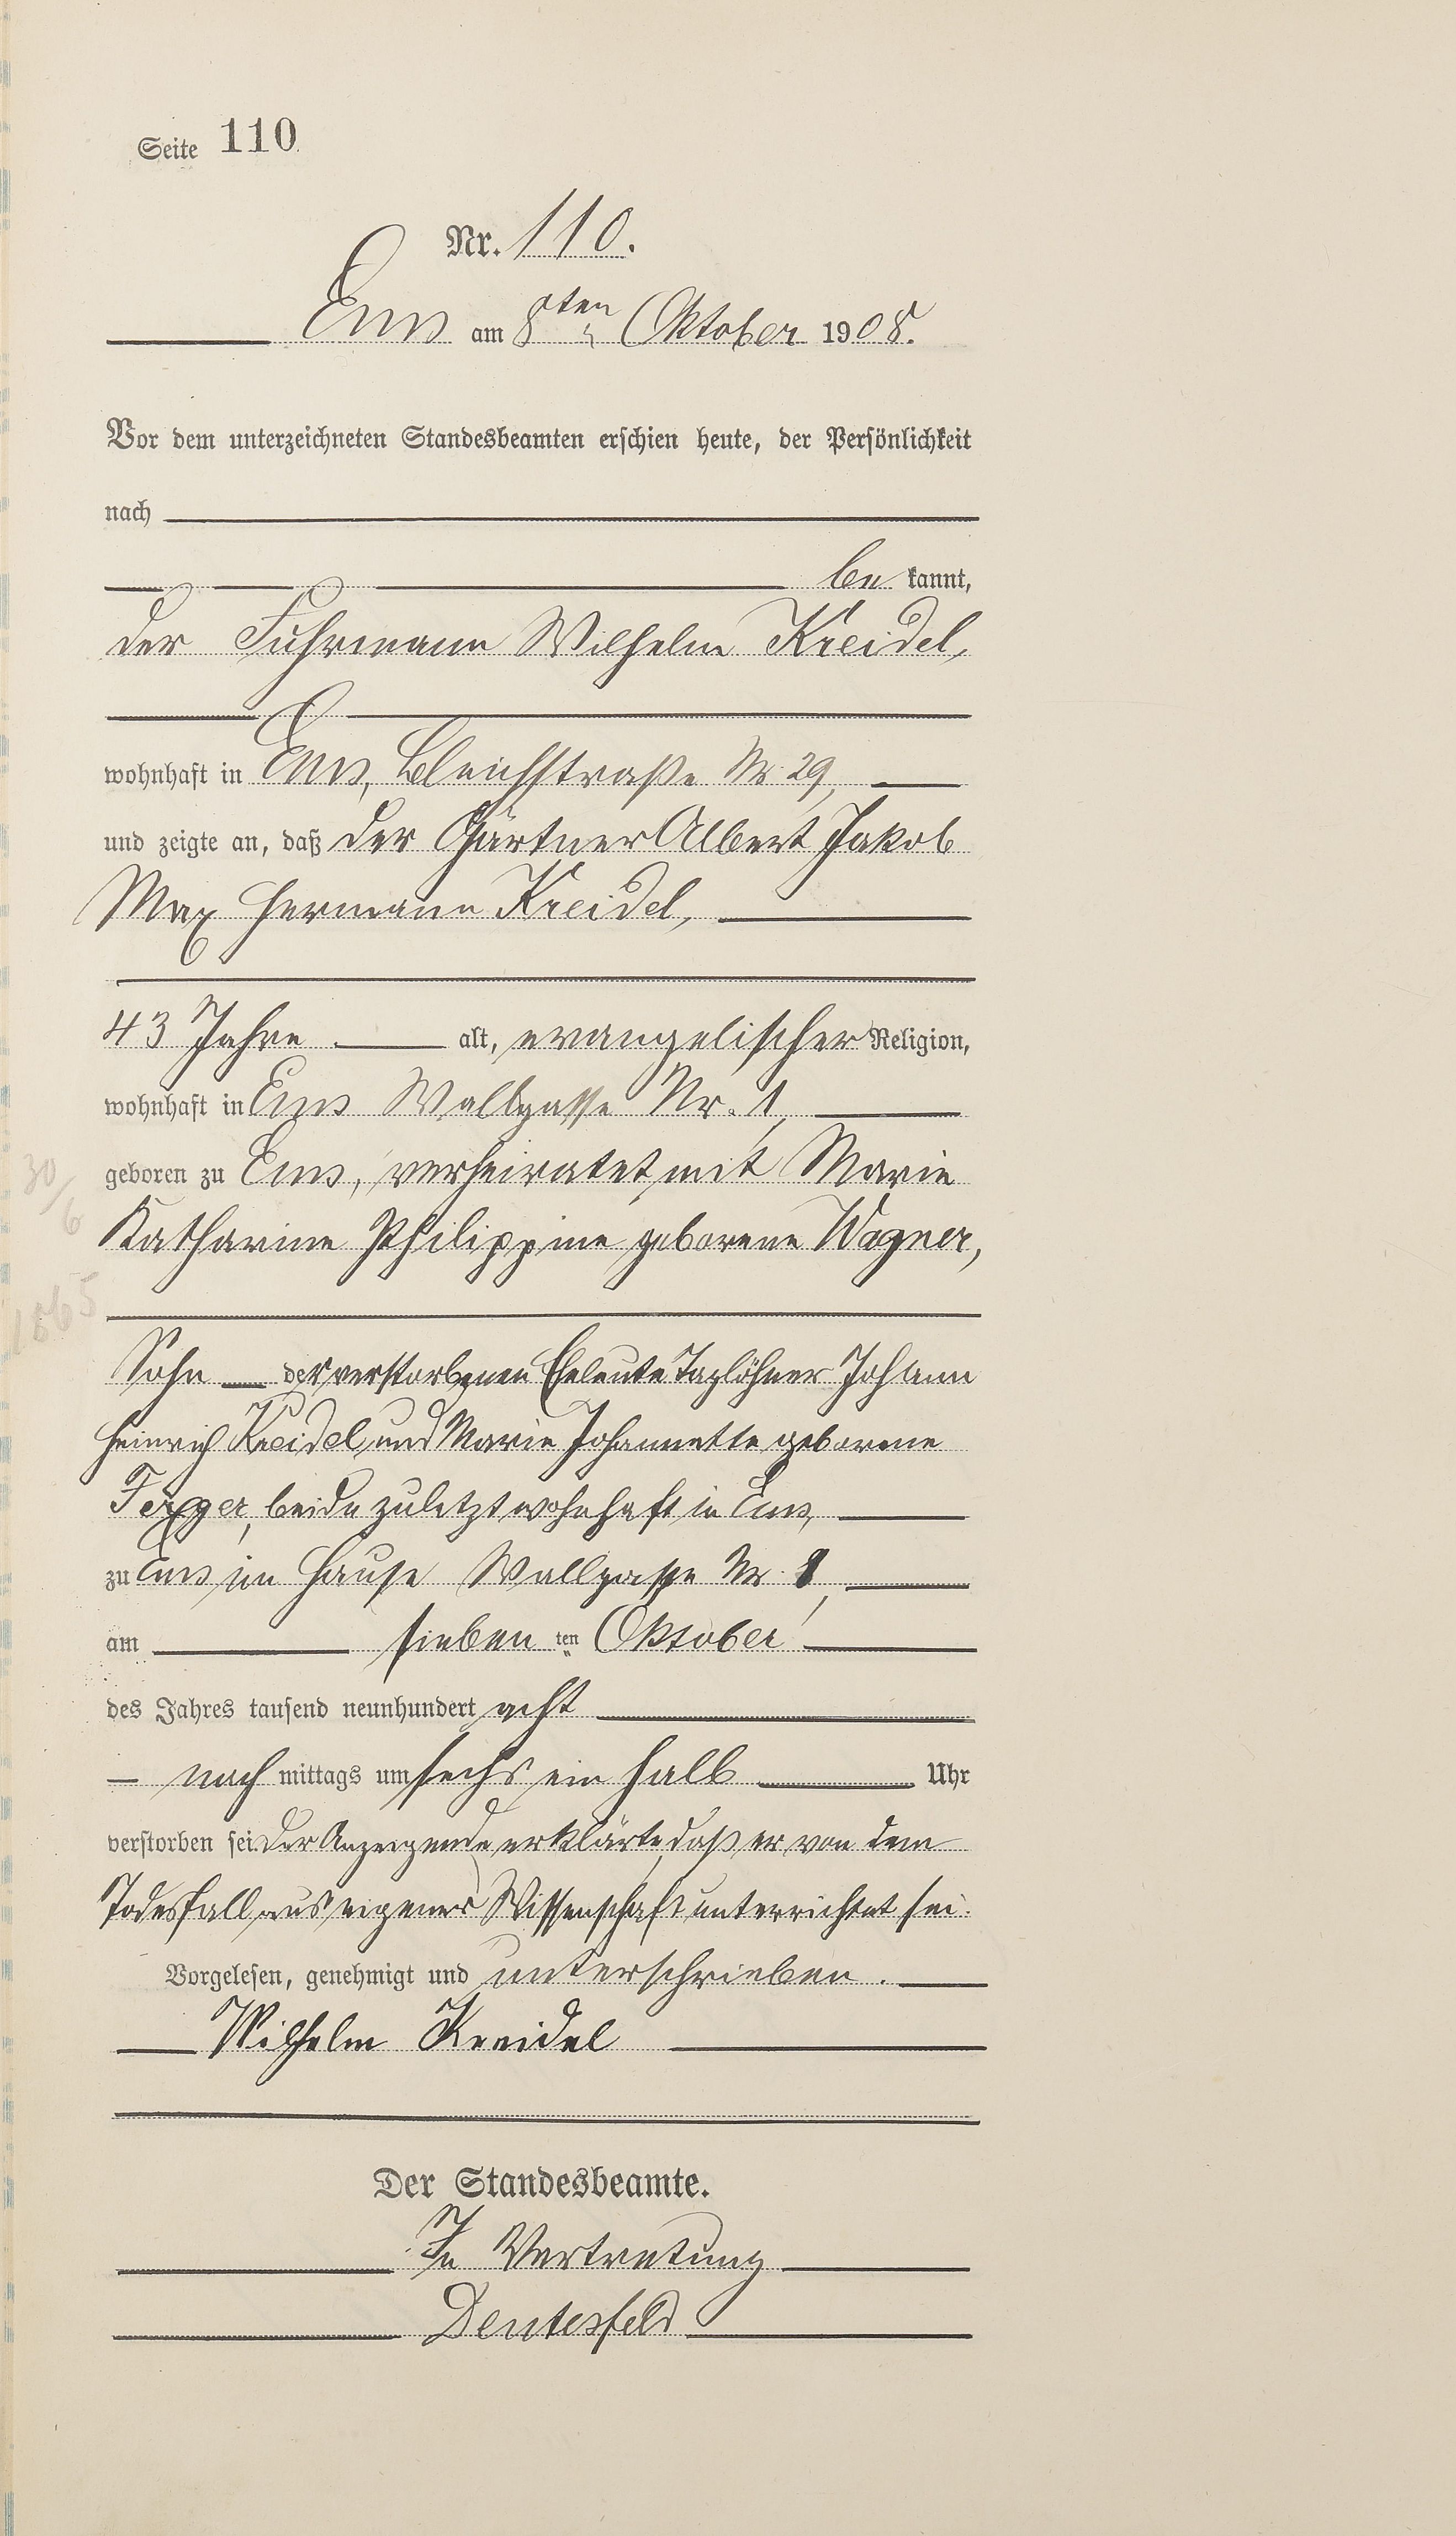 Seite 110
Nr. 110.
Ems am 8ten Oktober 1908.
Vor dem unterzeichneten Standesbeamten erschien heute, der Persönlichkeit
nach
be kannt,
der Fuhrmann Wilhelm Kreidel,
wohnhaft in Ems, Bleichstraße Nr. 29,
und zeigte an, daß der Gärtner Albert Jakob
Max Hermann Kreidel,
43 Jahre alt, evangelischer Religion,
wohnhaft in Ems Wallgasse Nr. 1,
geboren zu Ems, verheiratet mit Marie
30/6
Katharine Philippine geborene Wagner,
1865
Sohn der verstorbenen Eheleute Taglöhner Johann
Heinrich Kreidel und Marie Johannette geborene
beide zuletzt wohnhaft in Ems,
zu Ems im Hause Wallgasse Nr. 1,
am sieben ten Oktober
des Jahres tausend neunhundert acht
nach mittags um sechs ein halb Uhr
verstorben sei. Der Anzeigende erklärte, daß er von dem
Todesfall aus eigener Wissenschaft unterrichtet sei.
Vorgelesen, genehmigt und unterschrieben.
Wilhelm Kreidel
Der Standesbeamte.
In Vertretung